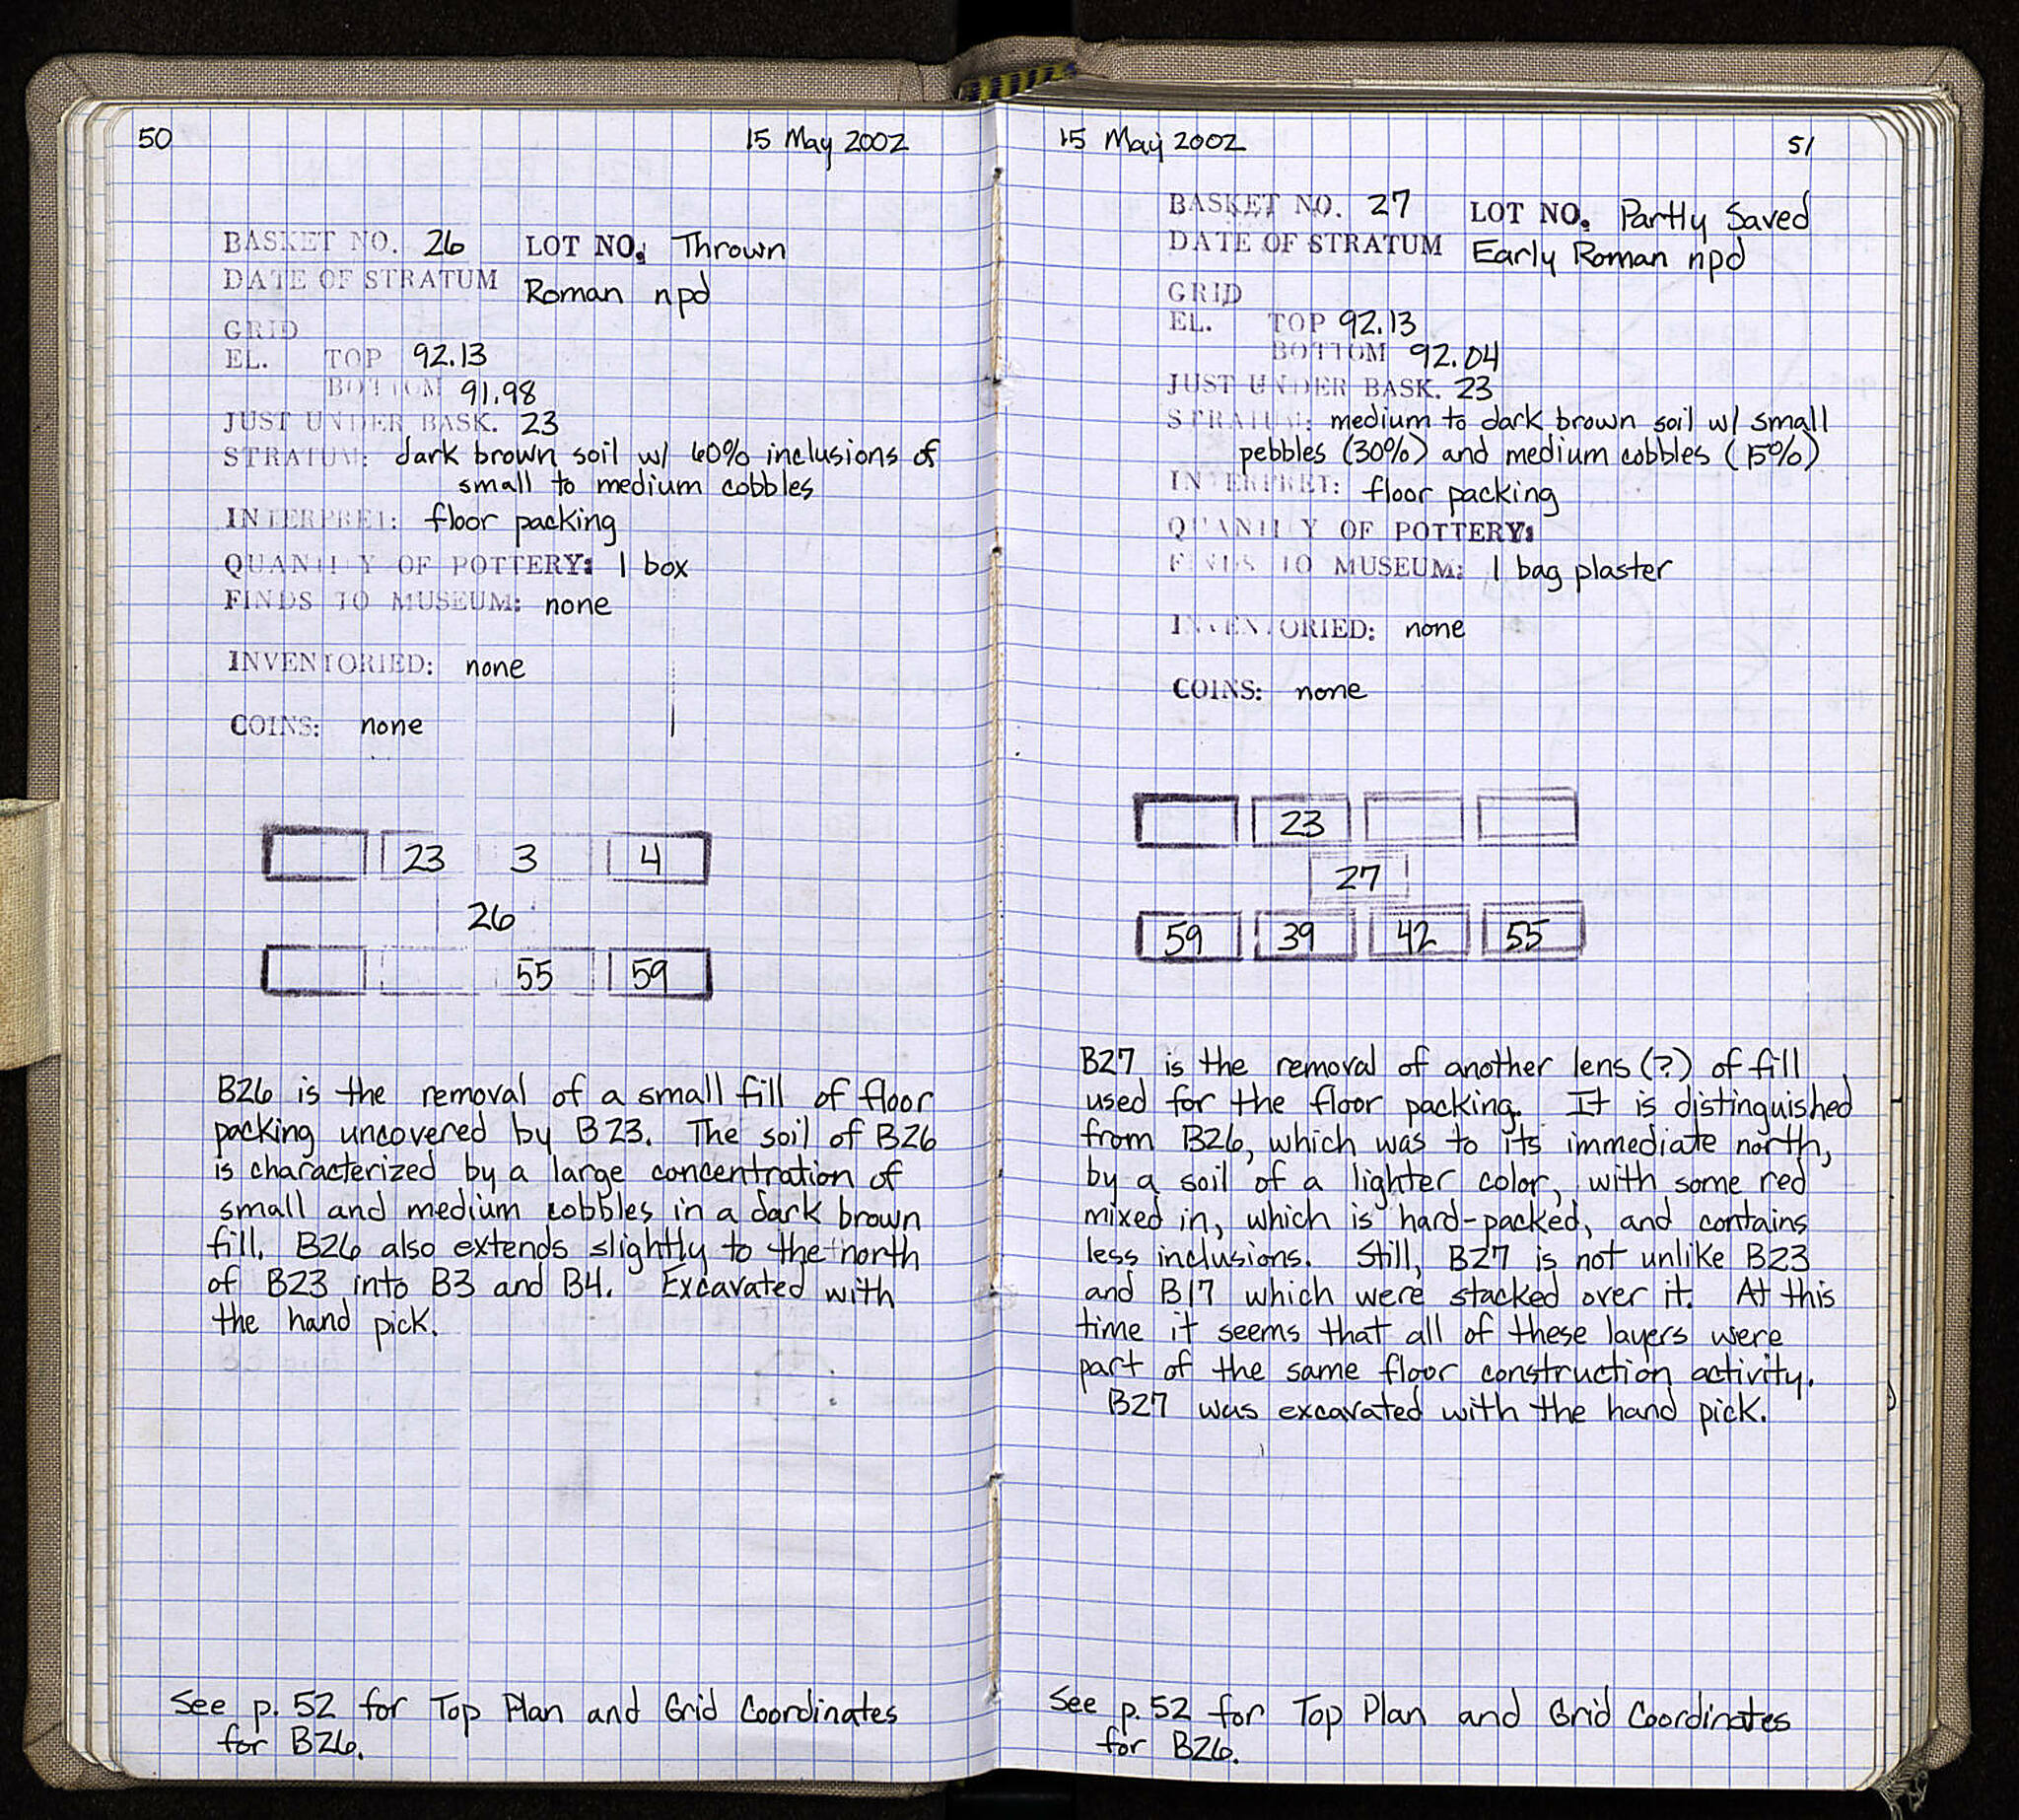 50
15 May 2002
BASKET NO. 26 LOT NO. Thrown
DATE OF STRATUM Roman npd
GRID
EL. TOP 92.13
BOTTOM 91.98
JUST UNDER BASK. 23
STRATUM: dark brown soil w/ 60% inclusions of
small to medium cobbles
INTERPRET: floor packing
QUANTITY OF POTTERY: 1 box
FINDS TO MUSEUM: none
INVENTORIED: none
COINS: none
23 3 4
26
55 59
B26 is the removal of a small fill of floor
packing uncovered by B23. The soil of B26
is characterized by a large concentration of
small and medium cobbles in a dark brown
fill. B26 also extends slightly to the north
of B23 into B3 and B4. Excavated with
the hand pick.
See p. 52 for Top Plan and Grid Coordinates
for B26.
15 May 2002
51
BASKET NO. 27 LOT NO. Partly Saved
DATE OF STRATUM Early Roman npd
GRID
EL. TOP 92.13
BOTTOM 92.04
JUST UNDER BASK. 23
STRATUM: medium to dark brown soil w/ small
pebbles (30%) and medium cobbles (15%)
INTERPRET: floor packing
QUANTITY OF POTTERY:
FINDS TO MUSEUM: 1 bag plaster
INVENTORIED: none
COINS: none
23
27
59 39 42 55
B27 is the removal of another lens (?) of fill
used for the floor packing. It is distinguished
from B26, which was to its immediate north,
by a soil of a lighter color, with some red
mixed in, which is hard-packed, and contains
less inclusions. Still, B27 is not unlike B23
and B17 which were stacked over it. At this
time it seems that all of these layers were
part of the same floor construction activity.
B27 was excavated with the hand pick.
See p. 52 for Top Plan and Grid Coordinates
for B26.